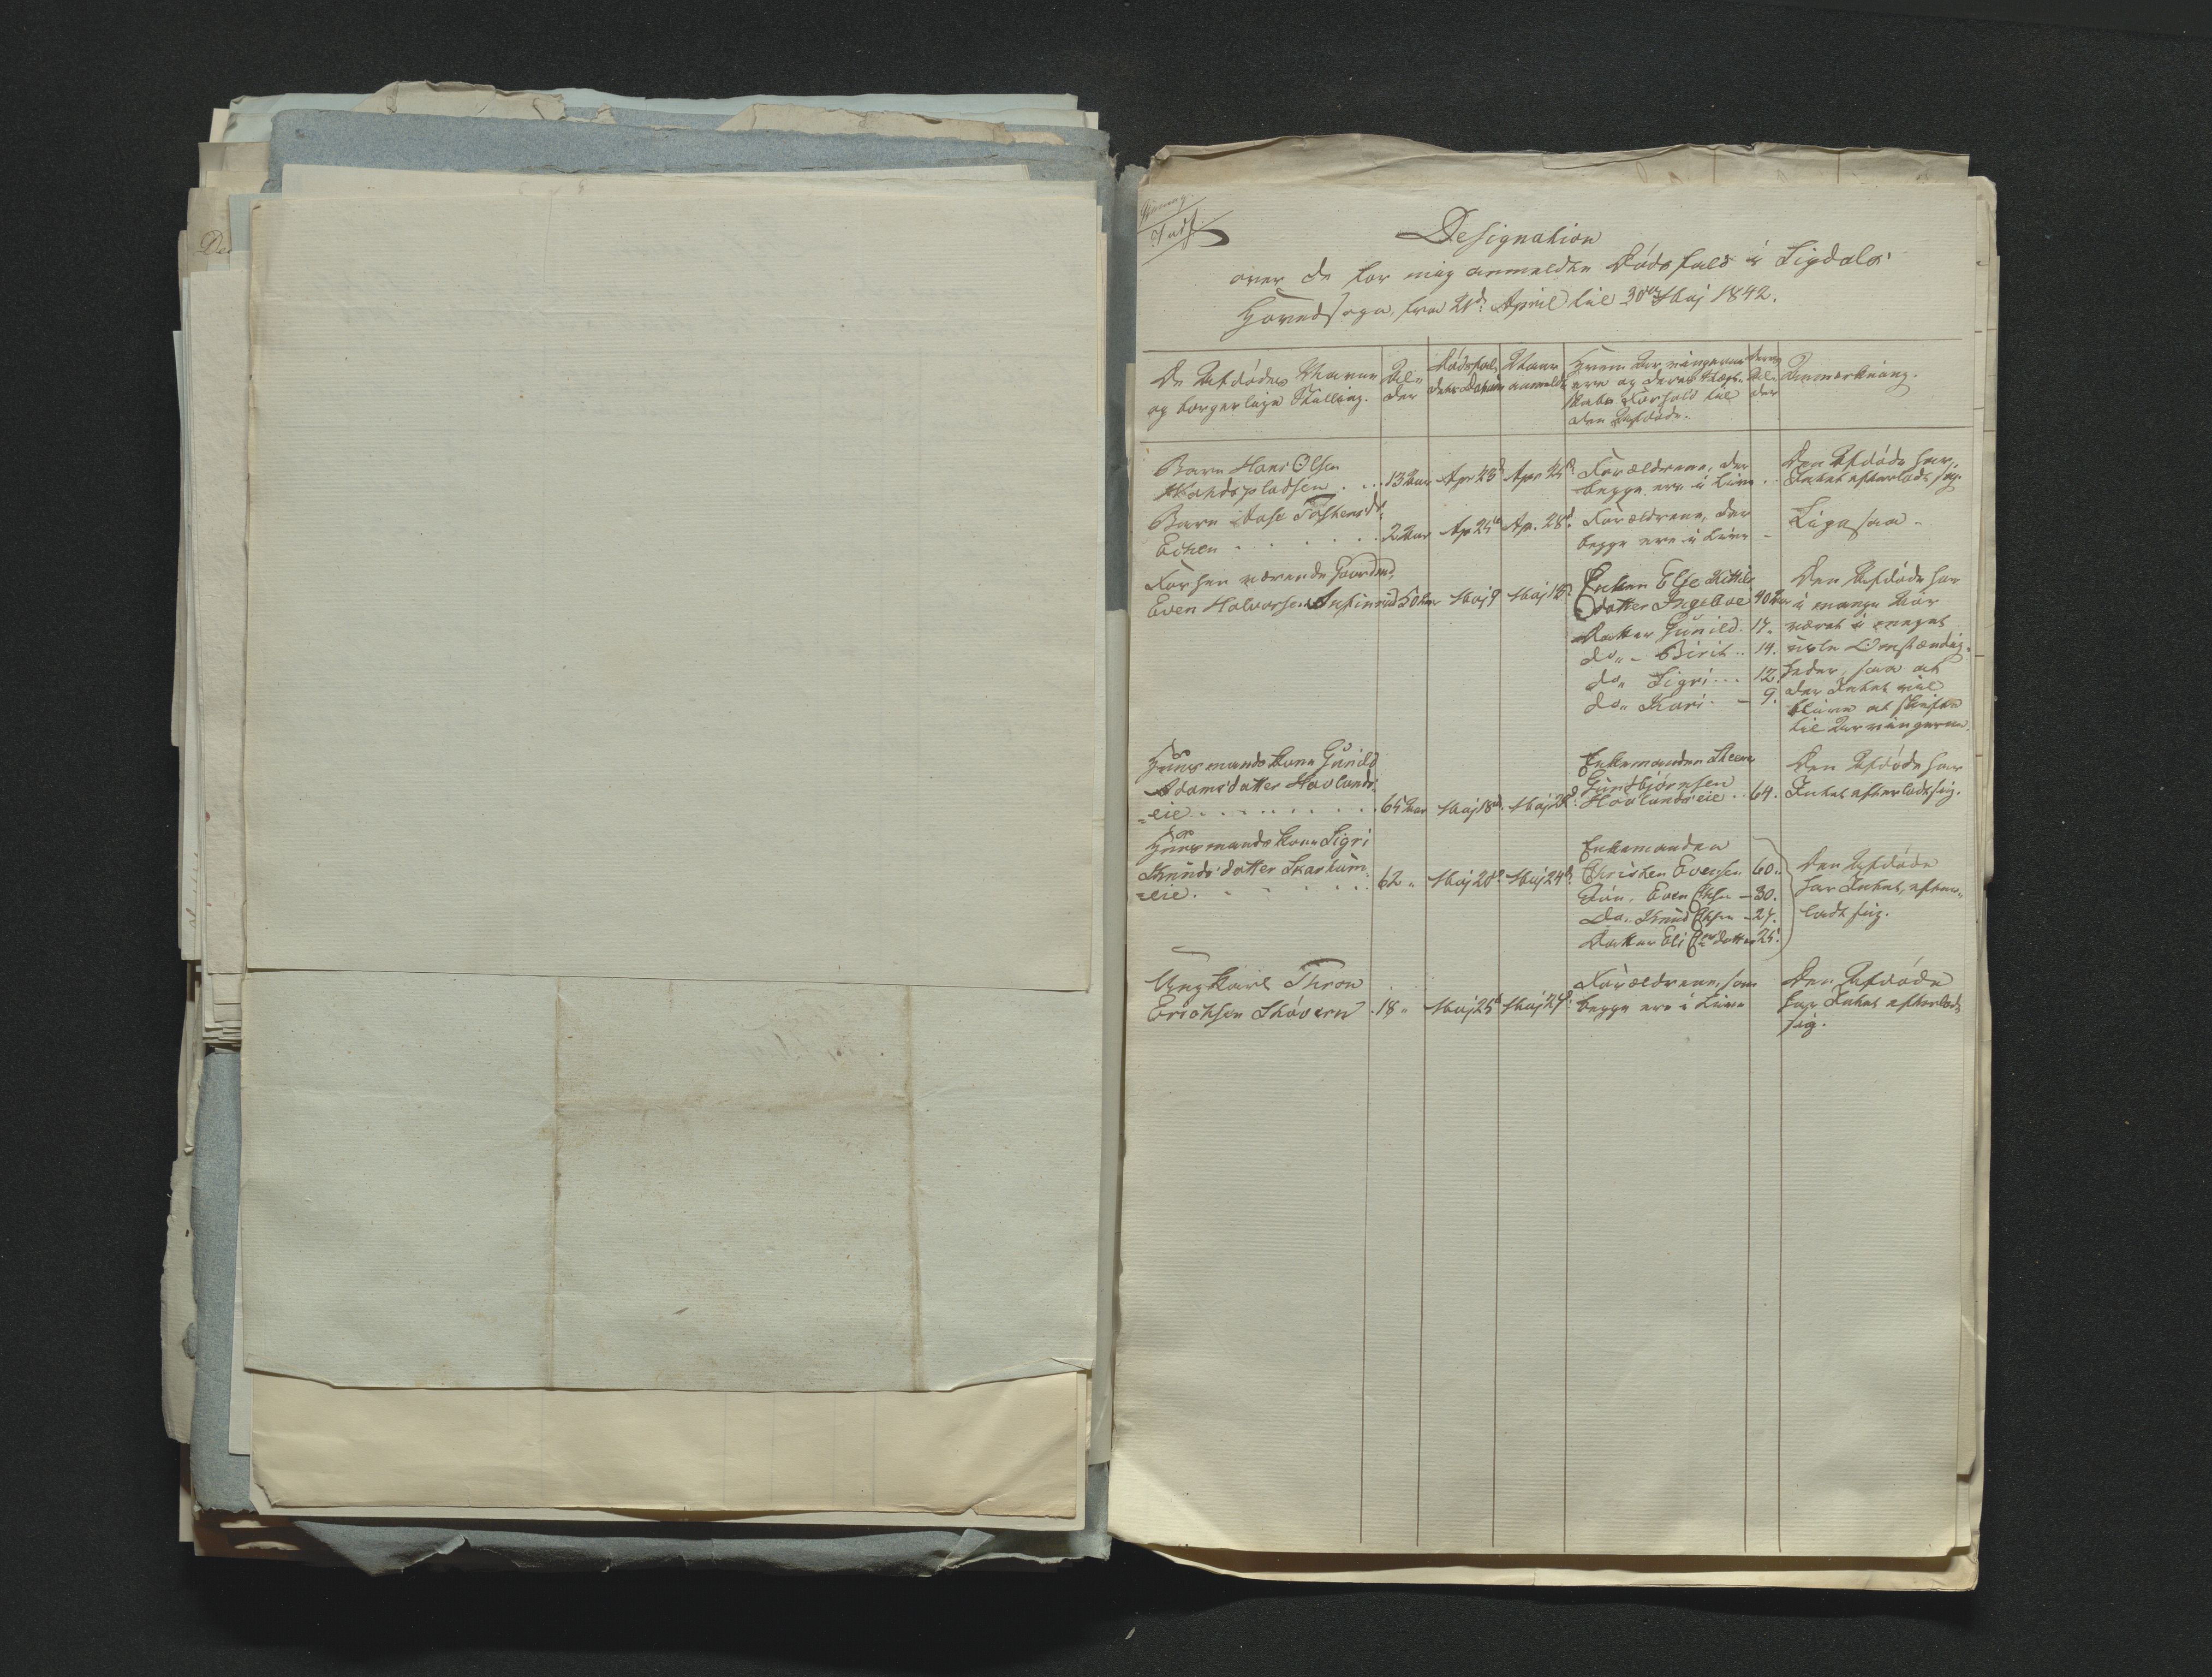 Designation
over de for mig anmeldte Dødsfald i Sigdals
Hovedsogn, fra 21d: April til 30te Maj 1842.
De Afdødes Navne
og borgerlige Stilling.
Al-
der
Dødsfal-
dets Datum
Naar
anmeldt
Hvem Arvingerne
ere og deres Slægt-
skabs Forhold til
den Afdøde.
deres
Al-
der
Anmærkning.
Barn Hans Olsen
13 Aar Apr 23d Apr 25d Forældrene, der
begge ere i Live
Den Afdøde har
Intet efterladt sig.
Barn Aase Tostensdr
Echen 2 Aar Ap 25d Ap. 28d: Forældrene, der
begge ere i Live
Ligesaa
Forhen værende Gaardmd,
Even Halvorsen 50 Aar Maj 9 Maj
Enken Else Kittils
datter Ibidem 40 Aar
Datter Gunild. 17.
do„ - Birit .. 14.
do„ Sigri ... 12.
do„ Kari. - 9.
Den Afdøde har
i mange Aar
været i meget
usle Omstændig-
heder, saa at
der Intet vil
blive at skifte
til Arvingerne.
Huusmandskone Gunild
Adamsdatter Hovlands-
eie 65 Aar Maj 18d Maj
Enkemanden Steener
Gundbjørnsen
Hovlandseie .. 64.
Den Afdøde har
Intet efterladt sig.
Huusmandskone Sigri
Knudsdatter Skartum-
eie. 62 „ Maj 20d Maj 24d:
Enkemanden
Christen Evensen 60.
Søn, Even Chsen - 30.
Do. Knud Chsen - 27.
Datter Eli Chrdatter 25.
Den Afdøde
har Intet efter-
ladt sig.
Ungkarl Thron
Erichsen Skovern 18 „ Maj 25d Maj 29d:
Forældrene, som
begge ere i Live
Den Afdøde
har Intet efterladt
sig.